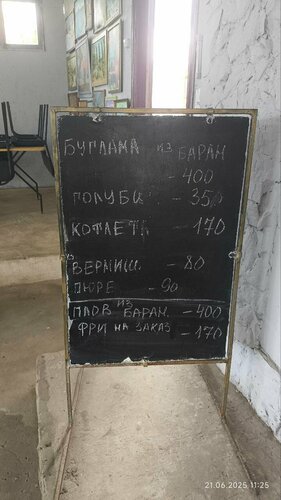 БУГЛАМА ИЗ БАРАН
- 400
ГОЛУБЦ. - 350
КОТЛЕТА - 170
ВЕРМИШ. - 80
ПЮРЕ - 90
ПЛОВ ИЗ БАРАН. - 400
ФРИ НА ЗАКАЗ - 170
21.06.2025 11:25